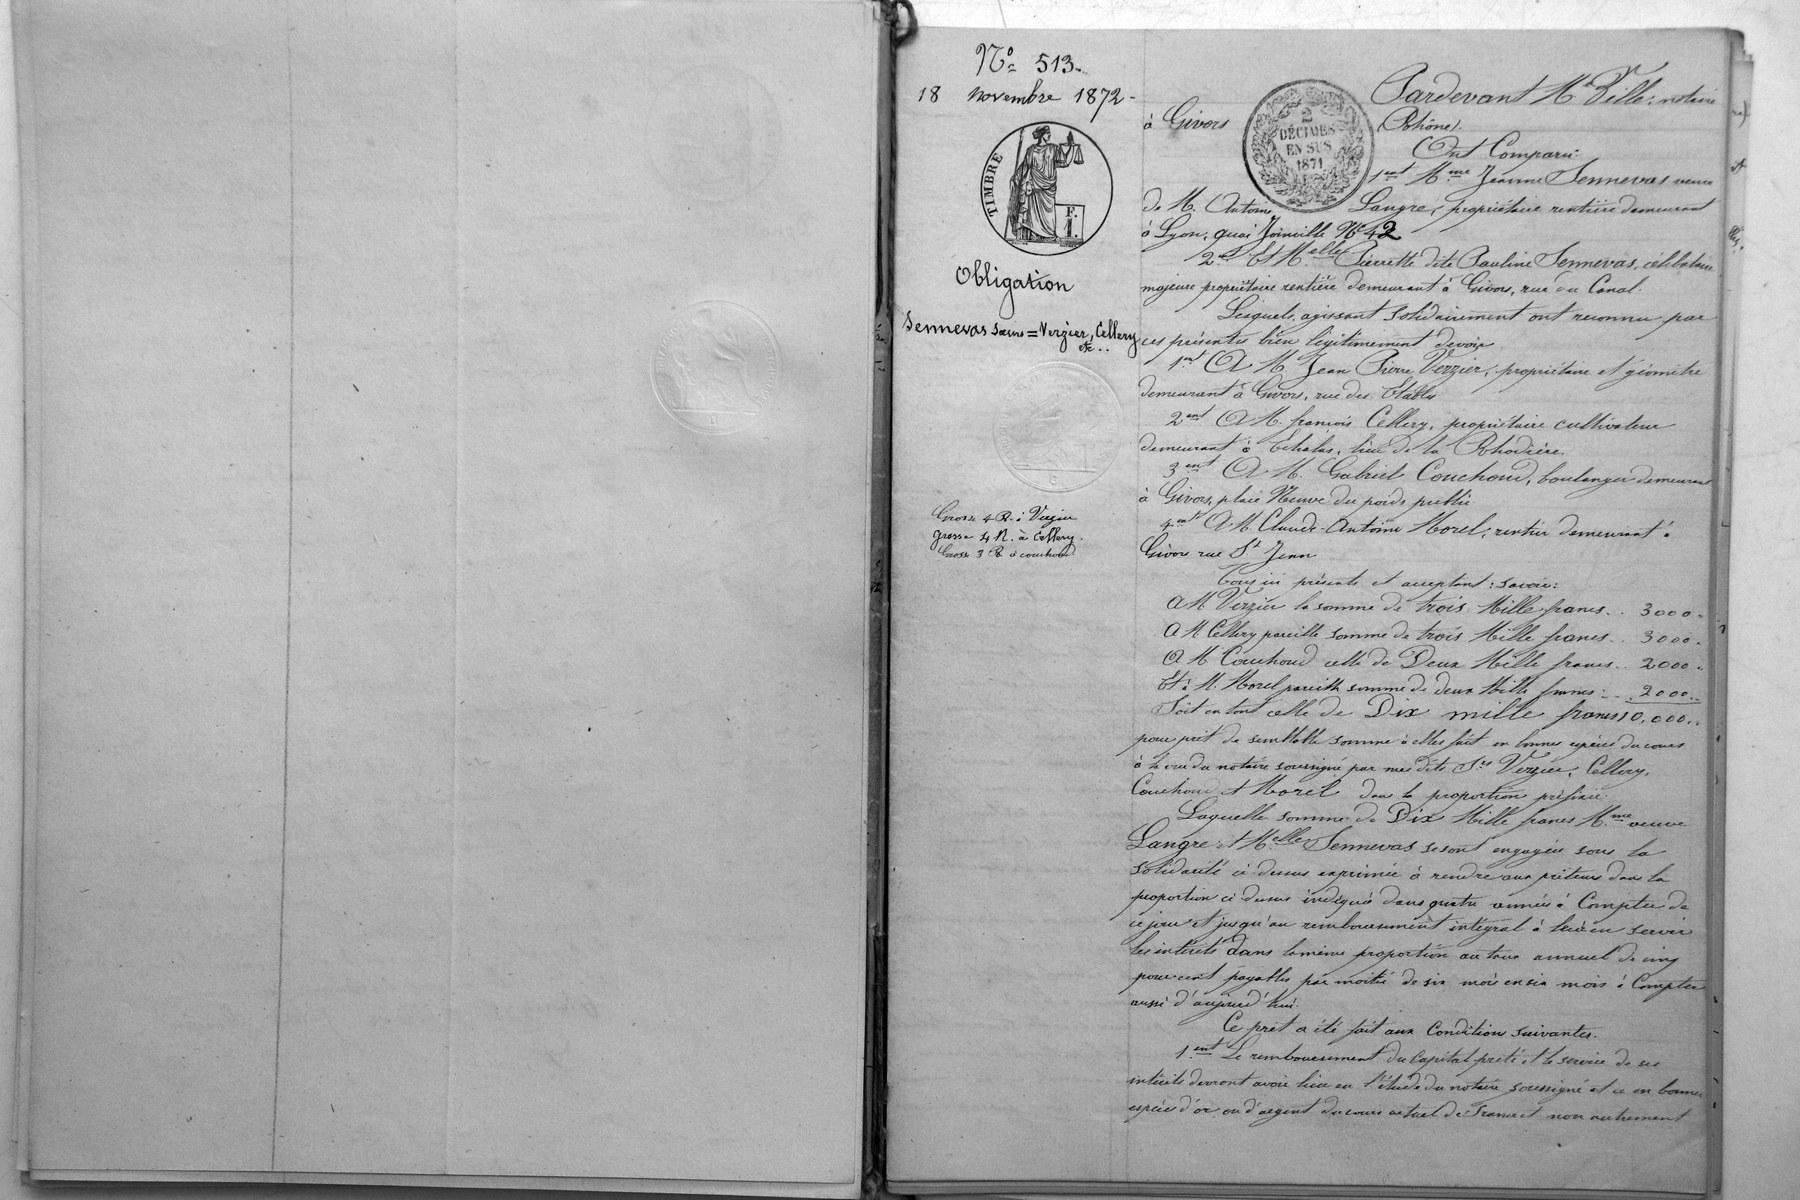 Nº 513.
18 novembre 1872.
TIMBRE
F.
1.
Obligation
Sennevas Sœurs = Verzier, Cellery
etc..
Grosse 4 R. à Verzier
grosse 4 R. à Cellery.
Grosse 3 R. à Couchoud
2
DÉCIMES
EN SUS
1871
Pardevant Me Pille, notaire
à Givors (Rhône).
Ont Comparu:
1ent Mme Jeanne Sennevas veuve
de M. Antoine Langre, propriétaire rentière demeurant
à Lyon, quai Joinville Nº 42
2ent Et Melle Pierrette dite Pauline Sennevas, célibataire
majeure propriétaire rentière demeurant à Givors, rue du Canal.
Lesquels, agissant solidairement ont reconnu par
ces présentes bien légitimement devoir
1ent A M. Jean Pierre Verzier, propriétaire et géomètre
demeurant à Givors, rue des Etables
2ent A M. françois Cellery, propriétaire cultivateur
demeurant à Echalas, lieu de la Rhodière.
3ent A M. Gabriel Couchoud, boulanger demeurant
à Givors, place Neuve du poids public
4ent A M. Claude-Antoine Morel, rentier demeurant à
Givors rue St Jean
Tous ici présents et acceptant: savoir:
A M. Verzier la somme de trois Mille francs.. 3000.
A M Cellery pareille somme de trois Mille francs.. 3000.
A M Couchoud celle de Deux Mille francs.. 2000.
Et à M. Morel pareille somme de deux Mille francs:.. 2000..
Soit en tout celle de Dix mille francs 10,000..
pour prêt de semblable somme à elles fait en bonnes espèces du cours
à la vue du notaire soussigné par mes dits Srs Verzier, Cellery,
Couchoud et Morel dans la proportion préfixée.
Laquelle somme de Dix Mille francs Mme veuve
Langre et Melle Sennevas se sont engagées sous la
solidarité ci-dessus exprimée à rendre aux prêteurs dans la
proportion ci dessus indiquée dans quatre années à Compter de
ce jour et jusqu'au remboursement intégral à leur en servir
les intérêts dans la même proportion au taux annuel de cinq
pour cent payables par moitié de six mois en six mois à Compter
aussi d'aujourd'hui.
Ce prêt a été fait aux Conditions suivantes.
1.ent Le remboursement du Capital prêté et le service de ses
intérêts devront avoir lieu en l'étude du notaire soussigné et ce en bonnes
espèces d'or ou d'argent du cours actuel de France et non autrement